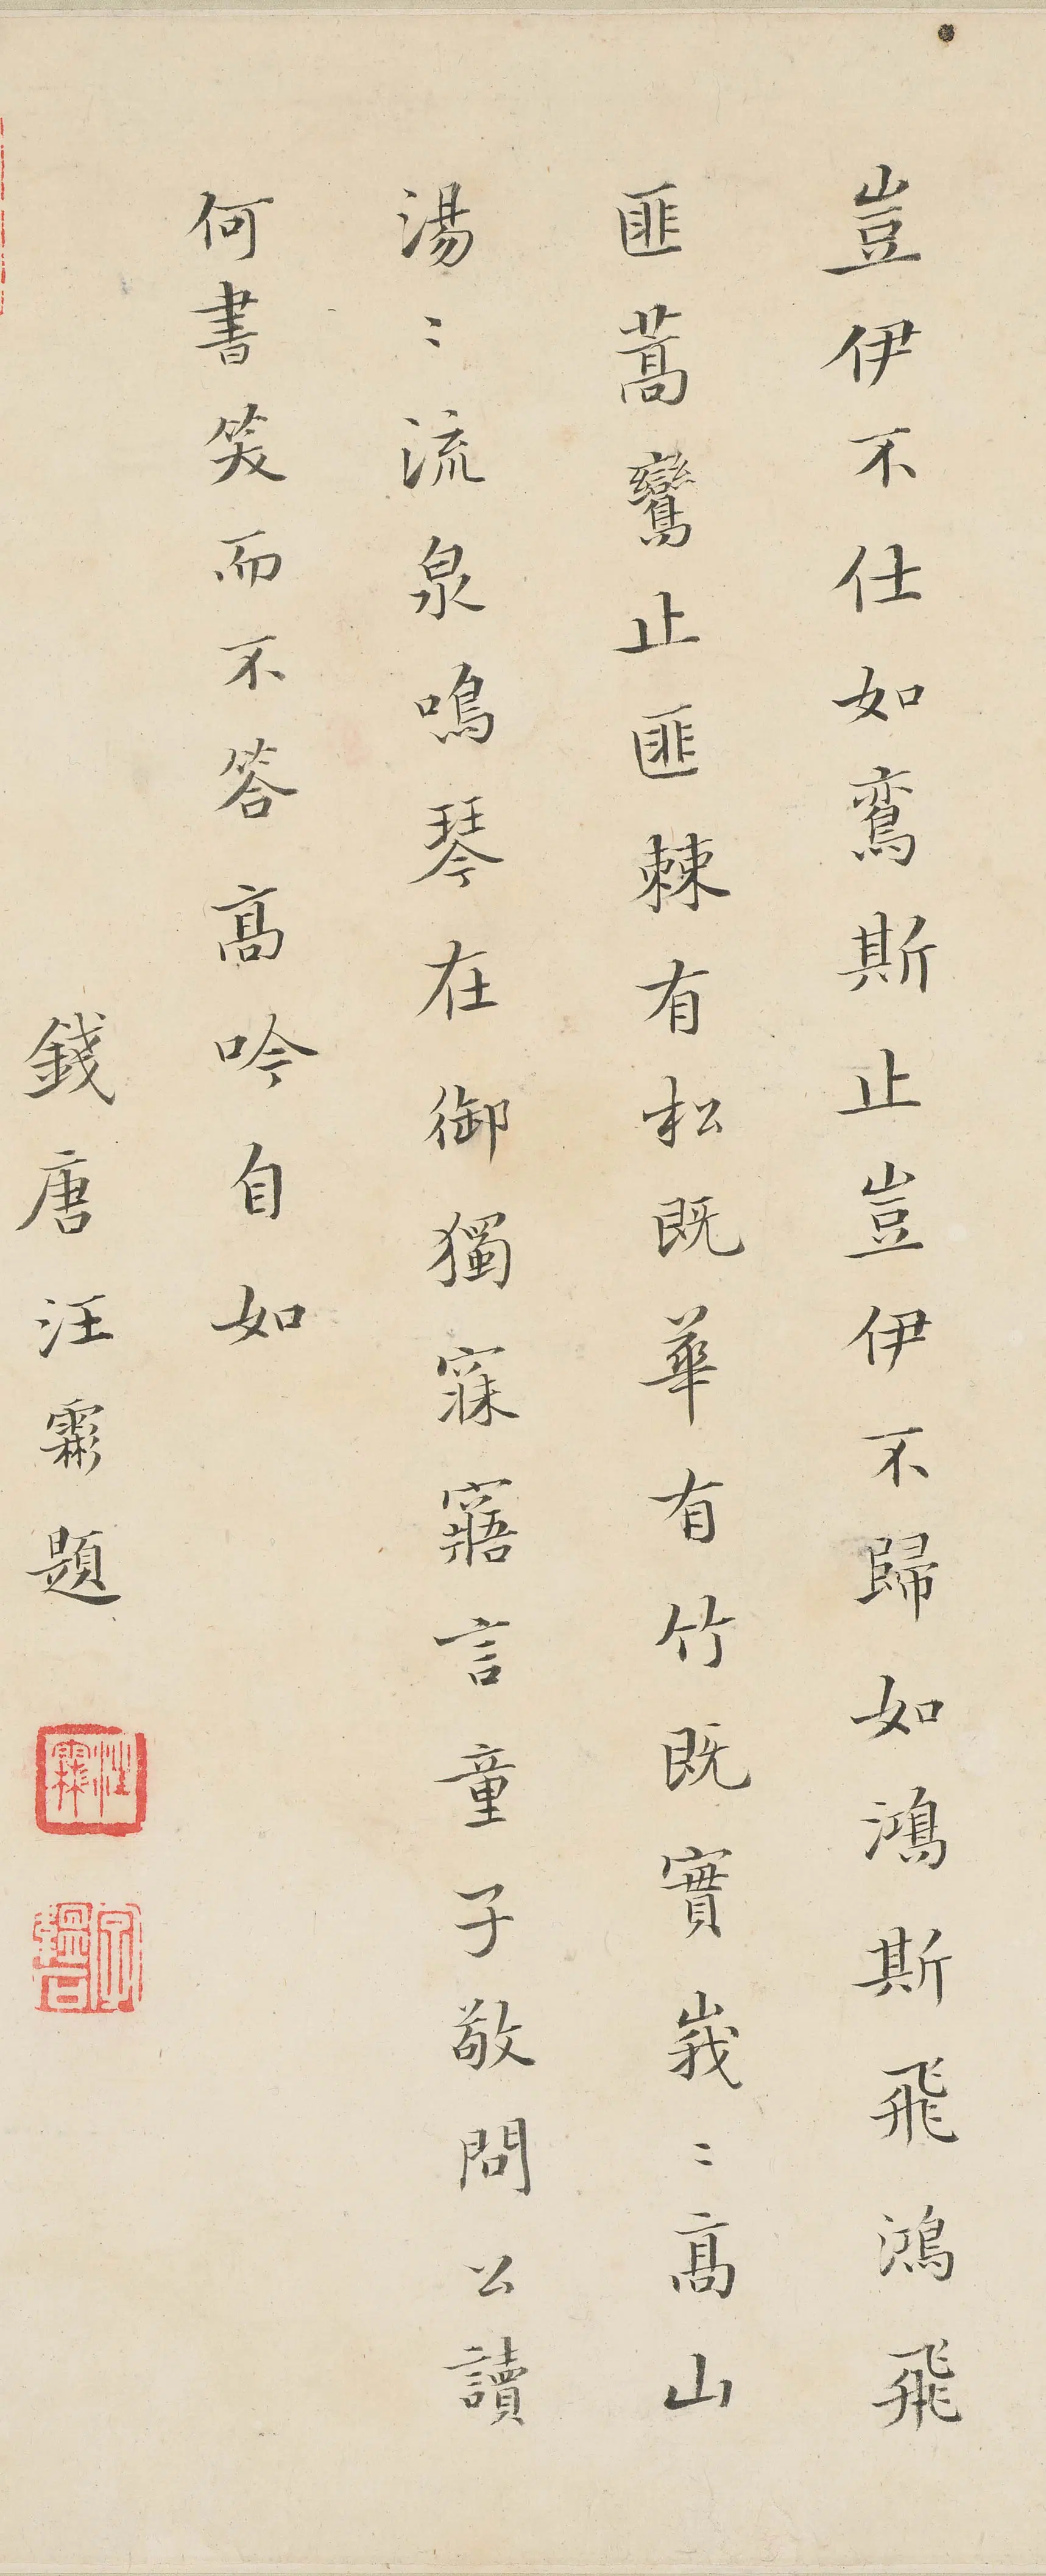 豈伊不仕如鸞斯止豈伊不歸如鴻斯飛鴻飛
匪蒿鸞止匪棘有松既華有竹既實峩〻高山
湯〻流泉鳴琴在御獨寐寤言童子敬問公讀
何書笑而不答高吟自如
錢唐汪霦題
汪霦